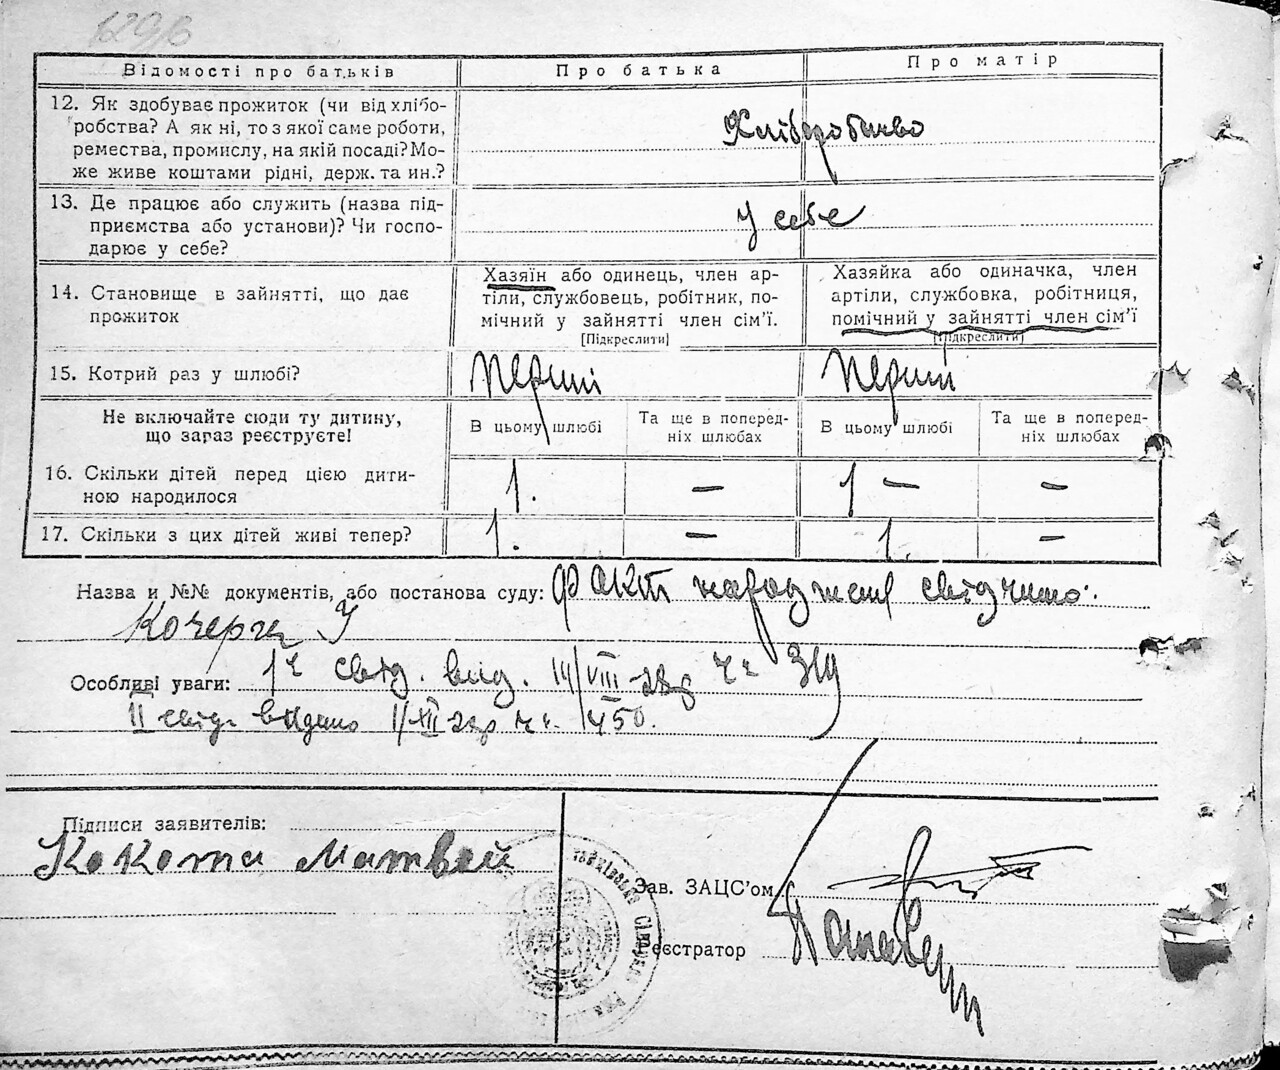 129в
Відомості про батьків
Про батька
Про матір
12. Як здобуває прожиток (чи від хлібо-
робства? А як ні, то з якої саме роботи,
ремества, промислу, на якій посаді? Мо-
же живе коштами рідні, держ. та ин.?
Хліборобство
13. Де працює або служить (назва під-
приємства або установи)? Чи госпо-
дарює у себе?
У себе
14. Становище в зайнятті, що дає
прожиток
Хазяїн або одинець, член ар-
тіли, службовець, робітник, по-
мічний у зайнятті член сім'ї.
[Підкреслити]
Хазяйка або одиначка, член
артіли, службовка, робітниця,
помічний у зайнятті член сім'ї
[Підкреслити]
15. Котрий раз у шлюбі?
перший
перший
Не включайте сюди ту дитину,
що зараз реєструєте!
В цьому шлюбі
Та ще в поперед-
ніх шлюбах
В цьому шлюбі
Та ще в поперед-
ніх шлюбах
16. Скільки дітей перед цією дити-
ною народилося
1. — 1 — —
17. Скільки з цих дітей живі тепер?
1. — 1. —
Назва и №№ документів, або постанова суду: Факт народження свідчило:
Кочерга У
Особливі уваги: 1ч свід. вид. III/VIII 28р чч
II свід. видано 1/XII 28р чч. 450.
Підписи заявителів:
Кокота Матвей
Зав. ЗАЦС'ом
Реєстратор
Сільська Рада